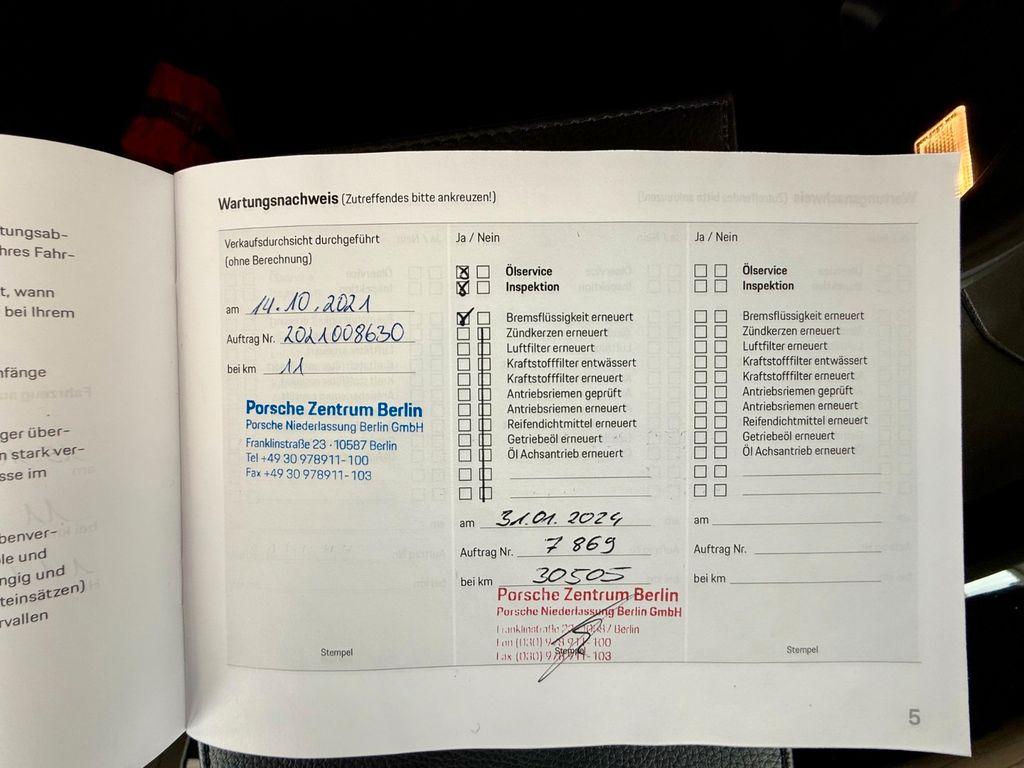 tungsab-
hres Fahr-
t, wann
bei Ihrem
nfänge
ger über-
n stark ver-
sse im
benver-
le und
ngig und
teinsätzen)
rvallen
Wartungsnachweis (Zutreffendes bitte ankreuzen!)
Verkaufsdurchsicht durchgeführt
(ohne Berechnung)
am 14.10.2021
Auftrag Nr. 2021008630
bei km 11
Porsche Zentrum Berlin
Porsche Niederlassung Berlin GmbH
Franklinstraße 23 · 10587 Berlin
Tel +49 30 978911-100
Fax +49 30 978911-103
Stempel
Ja / Nein
Ölservice
Inspektion
Bremsflüssigkeit erneuert
Zündkerzen erneuert
Luftfilter erneuert
Kraftstofffilter entwässert
Kraftstofffilter erneuert
Antriebsriemen geprüft
Antriebsriemen erneuert
Reifendichtmittel erneuert
Getriebeöl erneuert
Öl Achsantrieb erneuert
am 31.01.2024
Auftrag Nr. 7869
bei km 30505
Porsche Zentrum Berlin
Porsche Niederlassung Berlin GmbH
Franklinstraße Berlin
Fon (030) 978911-100
Fax (030) 978911-103
Stempel
Ja / Nein
Ölservice
Inspektion
Bremsflüssigkeit erneuert
Zündkerzen erneuert
Luftfilter erneuert
Kraftstofffilter entwässert
Kraftstofffilter erneuert
Antriebsriemen geprüft
Antriebsriemen erneuert
Reifendichtmittel erneuert
Getriebeöl erneuert
Öl Achsantrieb erneuert
am
Auftrag Nr.
bei km
Stempel
5